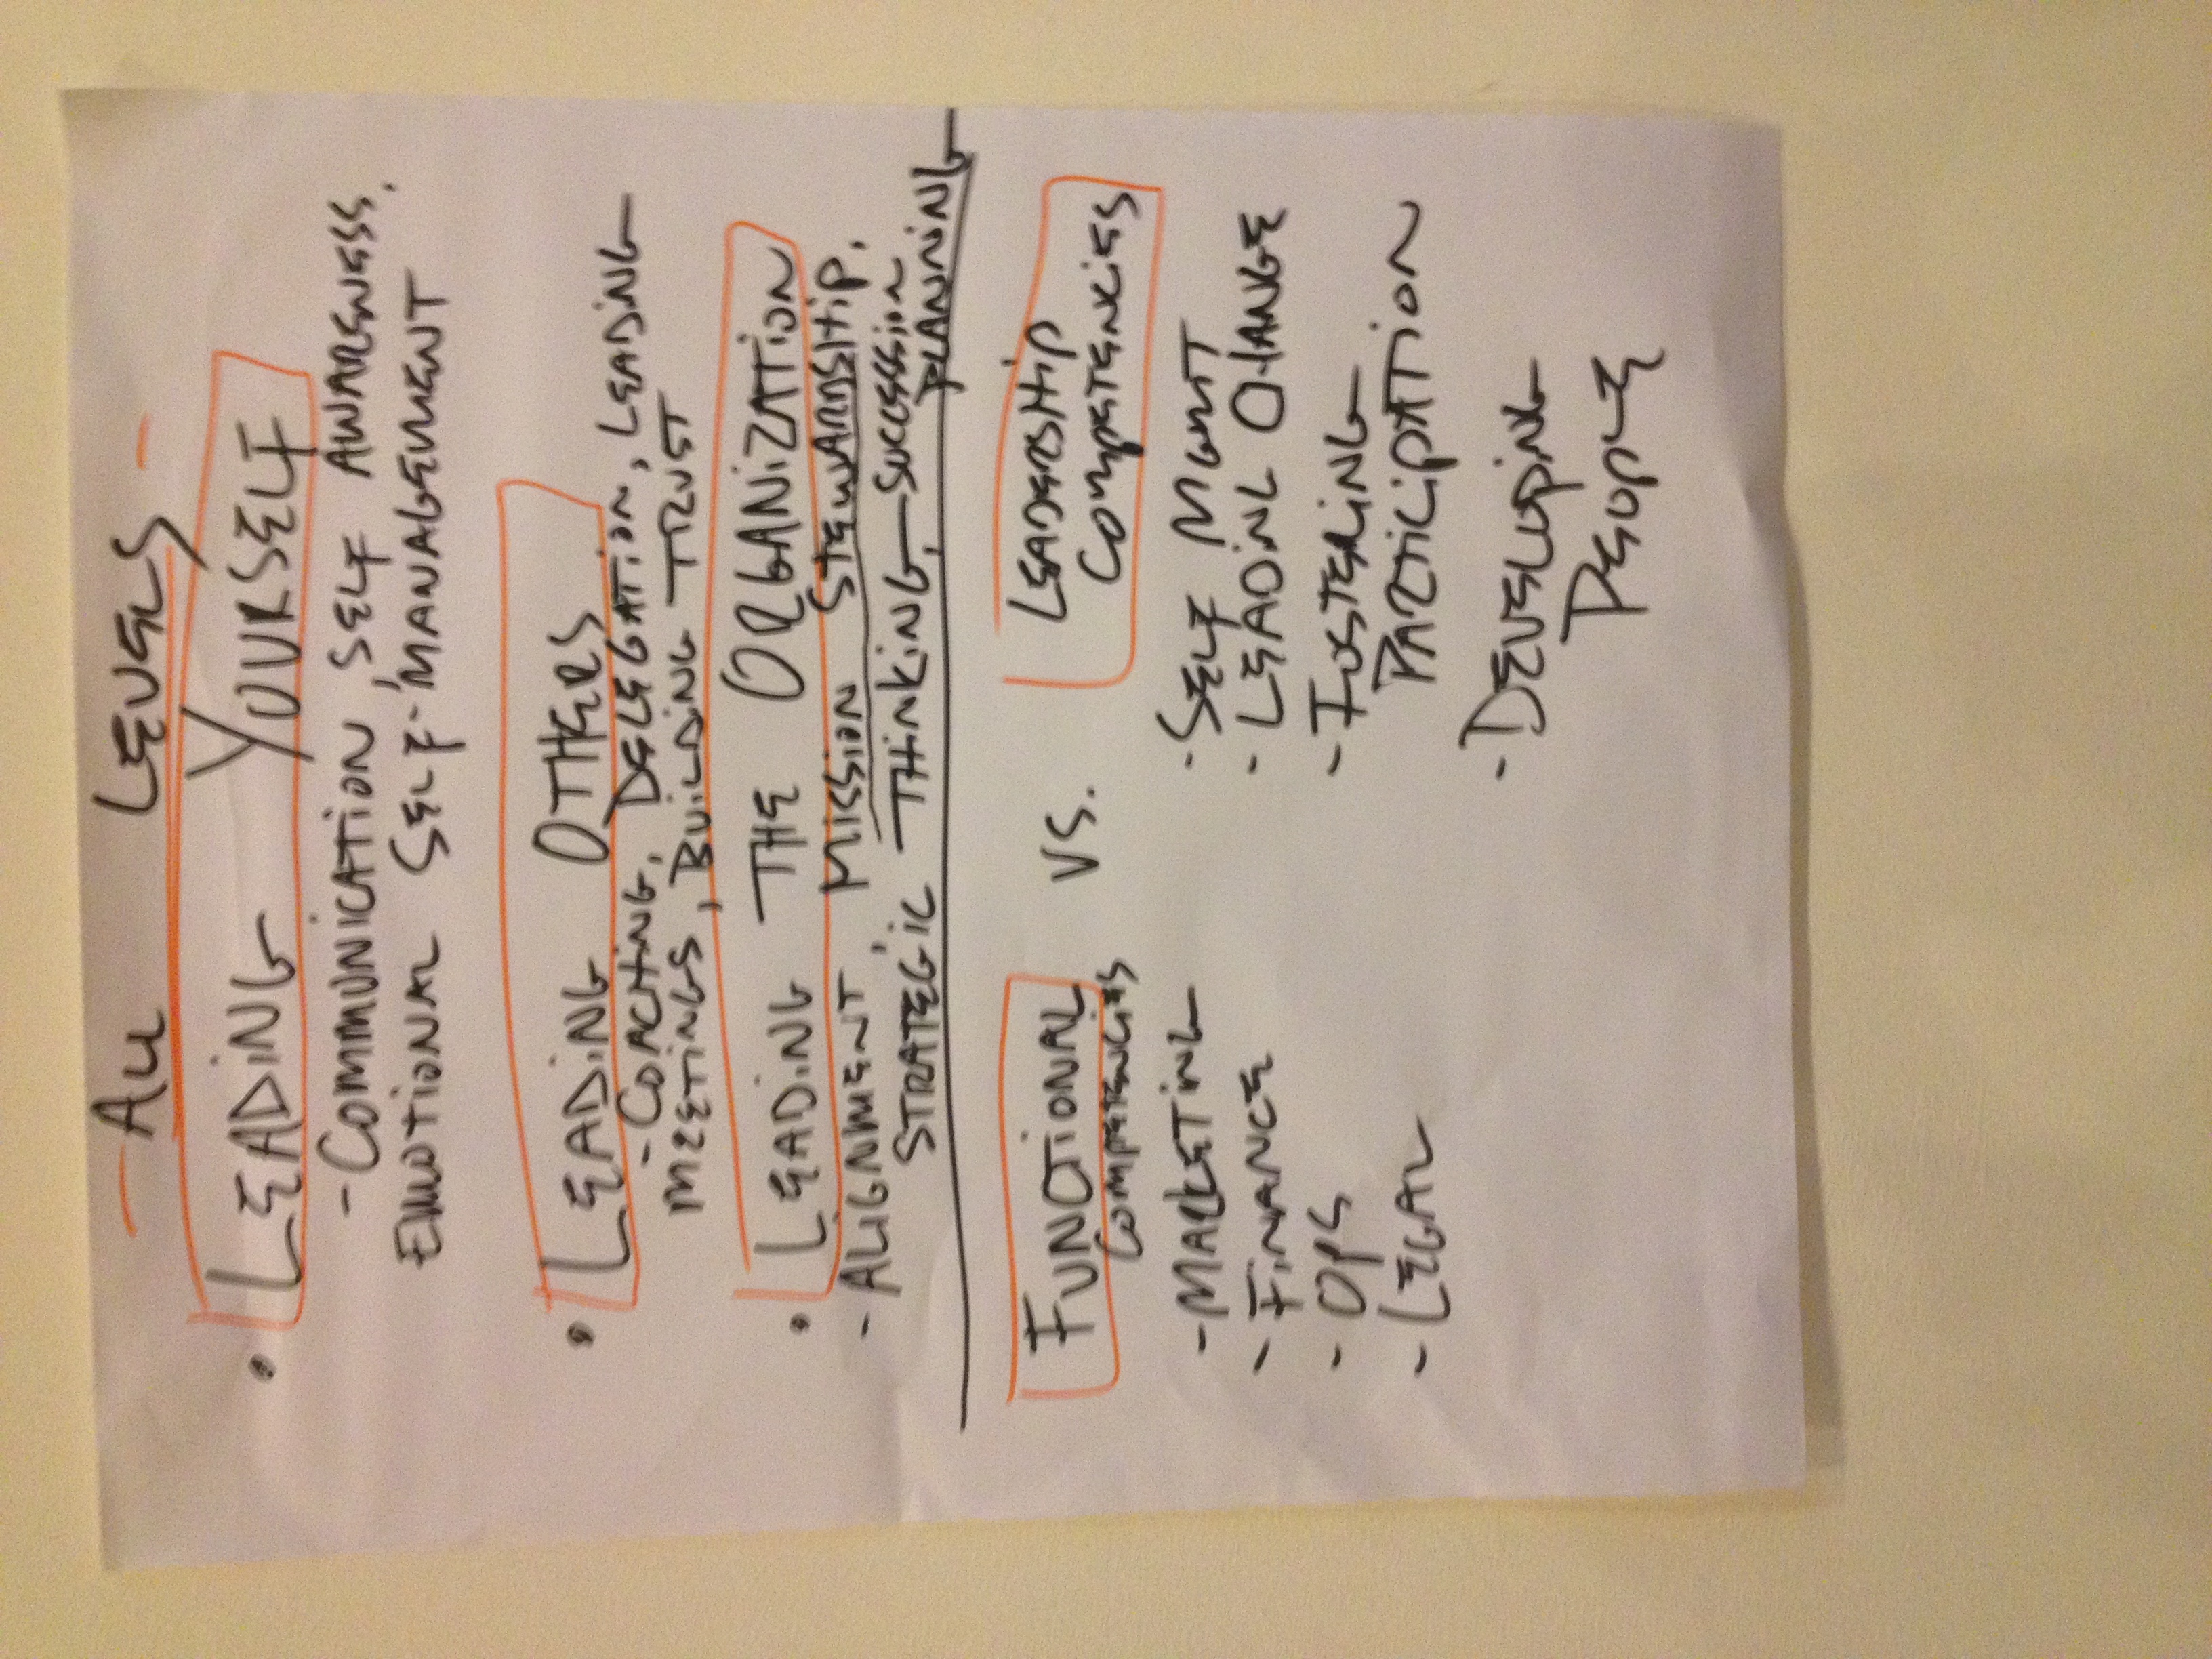 — ALL LEVELS —
• LEADING YOURSELF
- COMMUNICATION, SELF AWARENESS,
EMOTIONAL SELF-MANAGEMENT
• LEADING OTHERS
- COACHING, DELEGATION, LEADING
MEETINGS, BUILDING TRUST
• LEADING THE ORGANIZATION
- ALIGNMENT, MISSION STEWARDSHIP,
STRATEGIC THINKING, SUCCESSION
PLANNING
FUNCTIONAL VS. LEADERSHIP
COMPETENCIES COMPETENCIES
- MARKETING
- FINANCE
- OPS
- LEGAL
- SELF MGMT
- LEADING CHANGE
- FOSTERING
PARTICIPATION
- DEVELOPING
PEOPLE